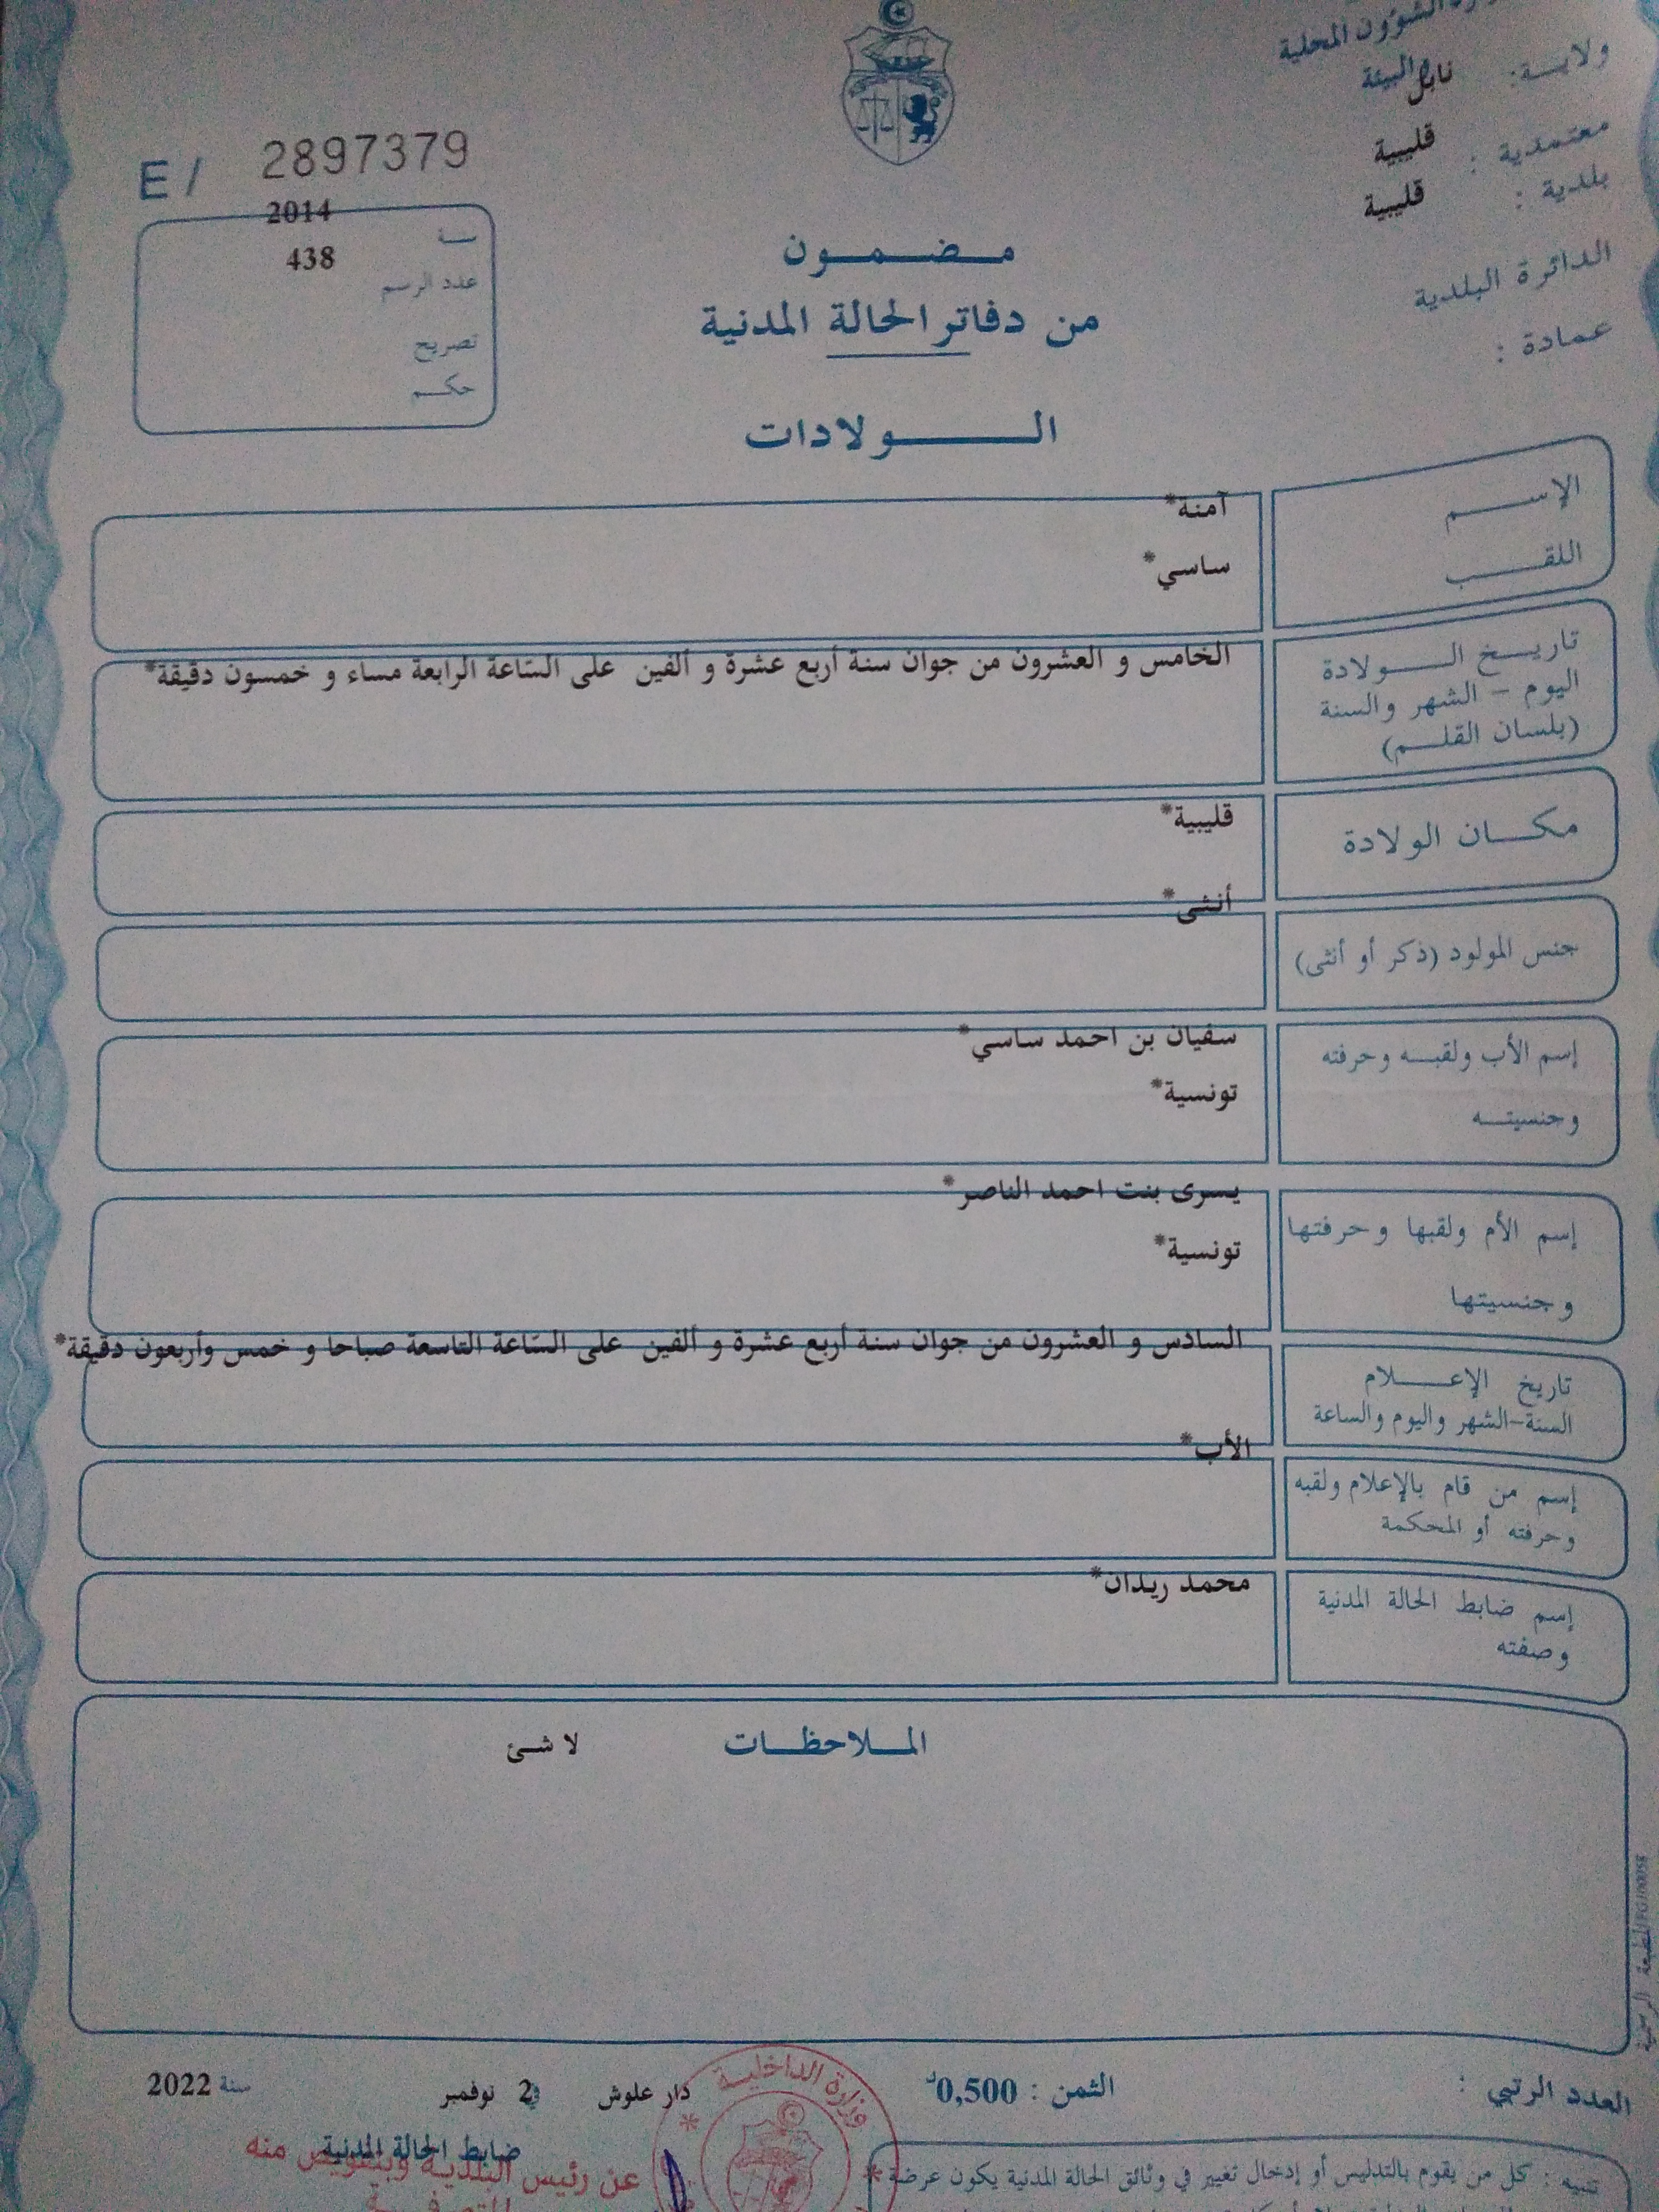 الشؤون المحلية
والبيئة
ولايـــة : نابل
معتمدية : قليبية
بلدية : قليبية
الدائرة البلدية
عمادة :
E / 2897379
سنة 2014
عدد الرسم 438
تصريح
حكم
مضمون
من دفاتر الحالة المدنية
الولادات
الإسم آمنة*
اللقب ساسي*
تاريخ الولادة
اليوم – الشهر والسنة
(بلسان القلم)
الخامس و العشرون من جوان سنة أربع عشرة و ألفين على الساعة الرابعة مساء و خمسون دقيقة*
مكان الولادة قليبية*
جنس المولود (ذكر أو أنثى) أنثى*
إسم الأب ولقبه وحرفته سفيان بن احمد ساسي*
وجنسيته تونسية*
إسم الأم ولقبها وحرفتها يسرى بنت احمد الناصر*
وجنسيتها تونسية*
تاريخ الإعلام
السنة–الشهر واليوم والساعة
السادس و العشرون من جوان سنة أربع عشرة و ألفين على الساعة التاسعة صباحا و خمس وأربعون دقيقة*
إسم من قام بالإعلام ولقبه
وحرفته أو المحكمة
الأب*
إسم ضابط الحالة المدنية
وصفته
محمد ريدان*
الملاحظات لا شئ
المطبعة الرسمية
العدد الرتبي :
الثمن : 0,500د
دار علوش في 2 نوفمبر سنة 2022
وزارة الداخلية
ضابط الحالة المدنية
عن رئيس البلدية وبتفويض منه
تنبيه : كل من يقوم بالتدليس أو إدخال تغيير في وثائق الحالة المدنية يكون عرضة